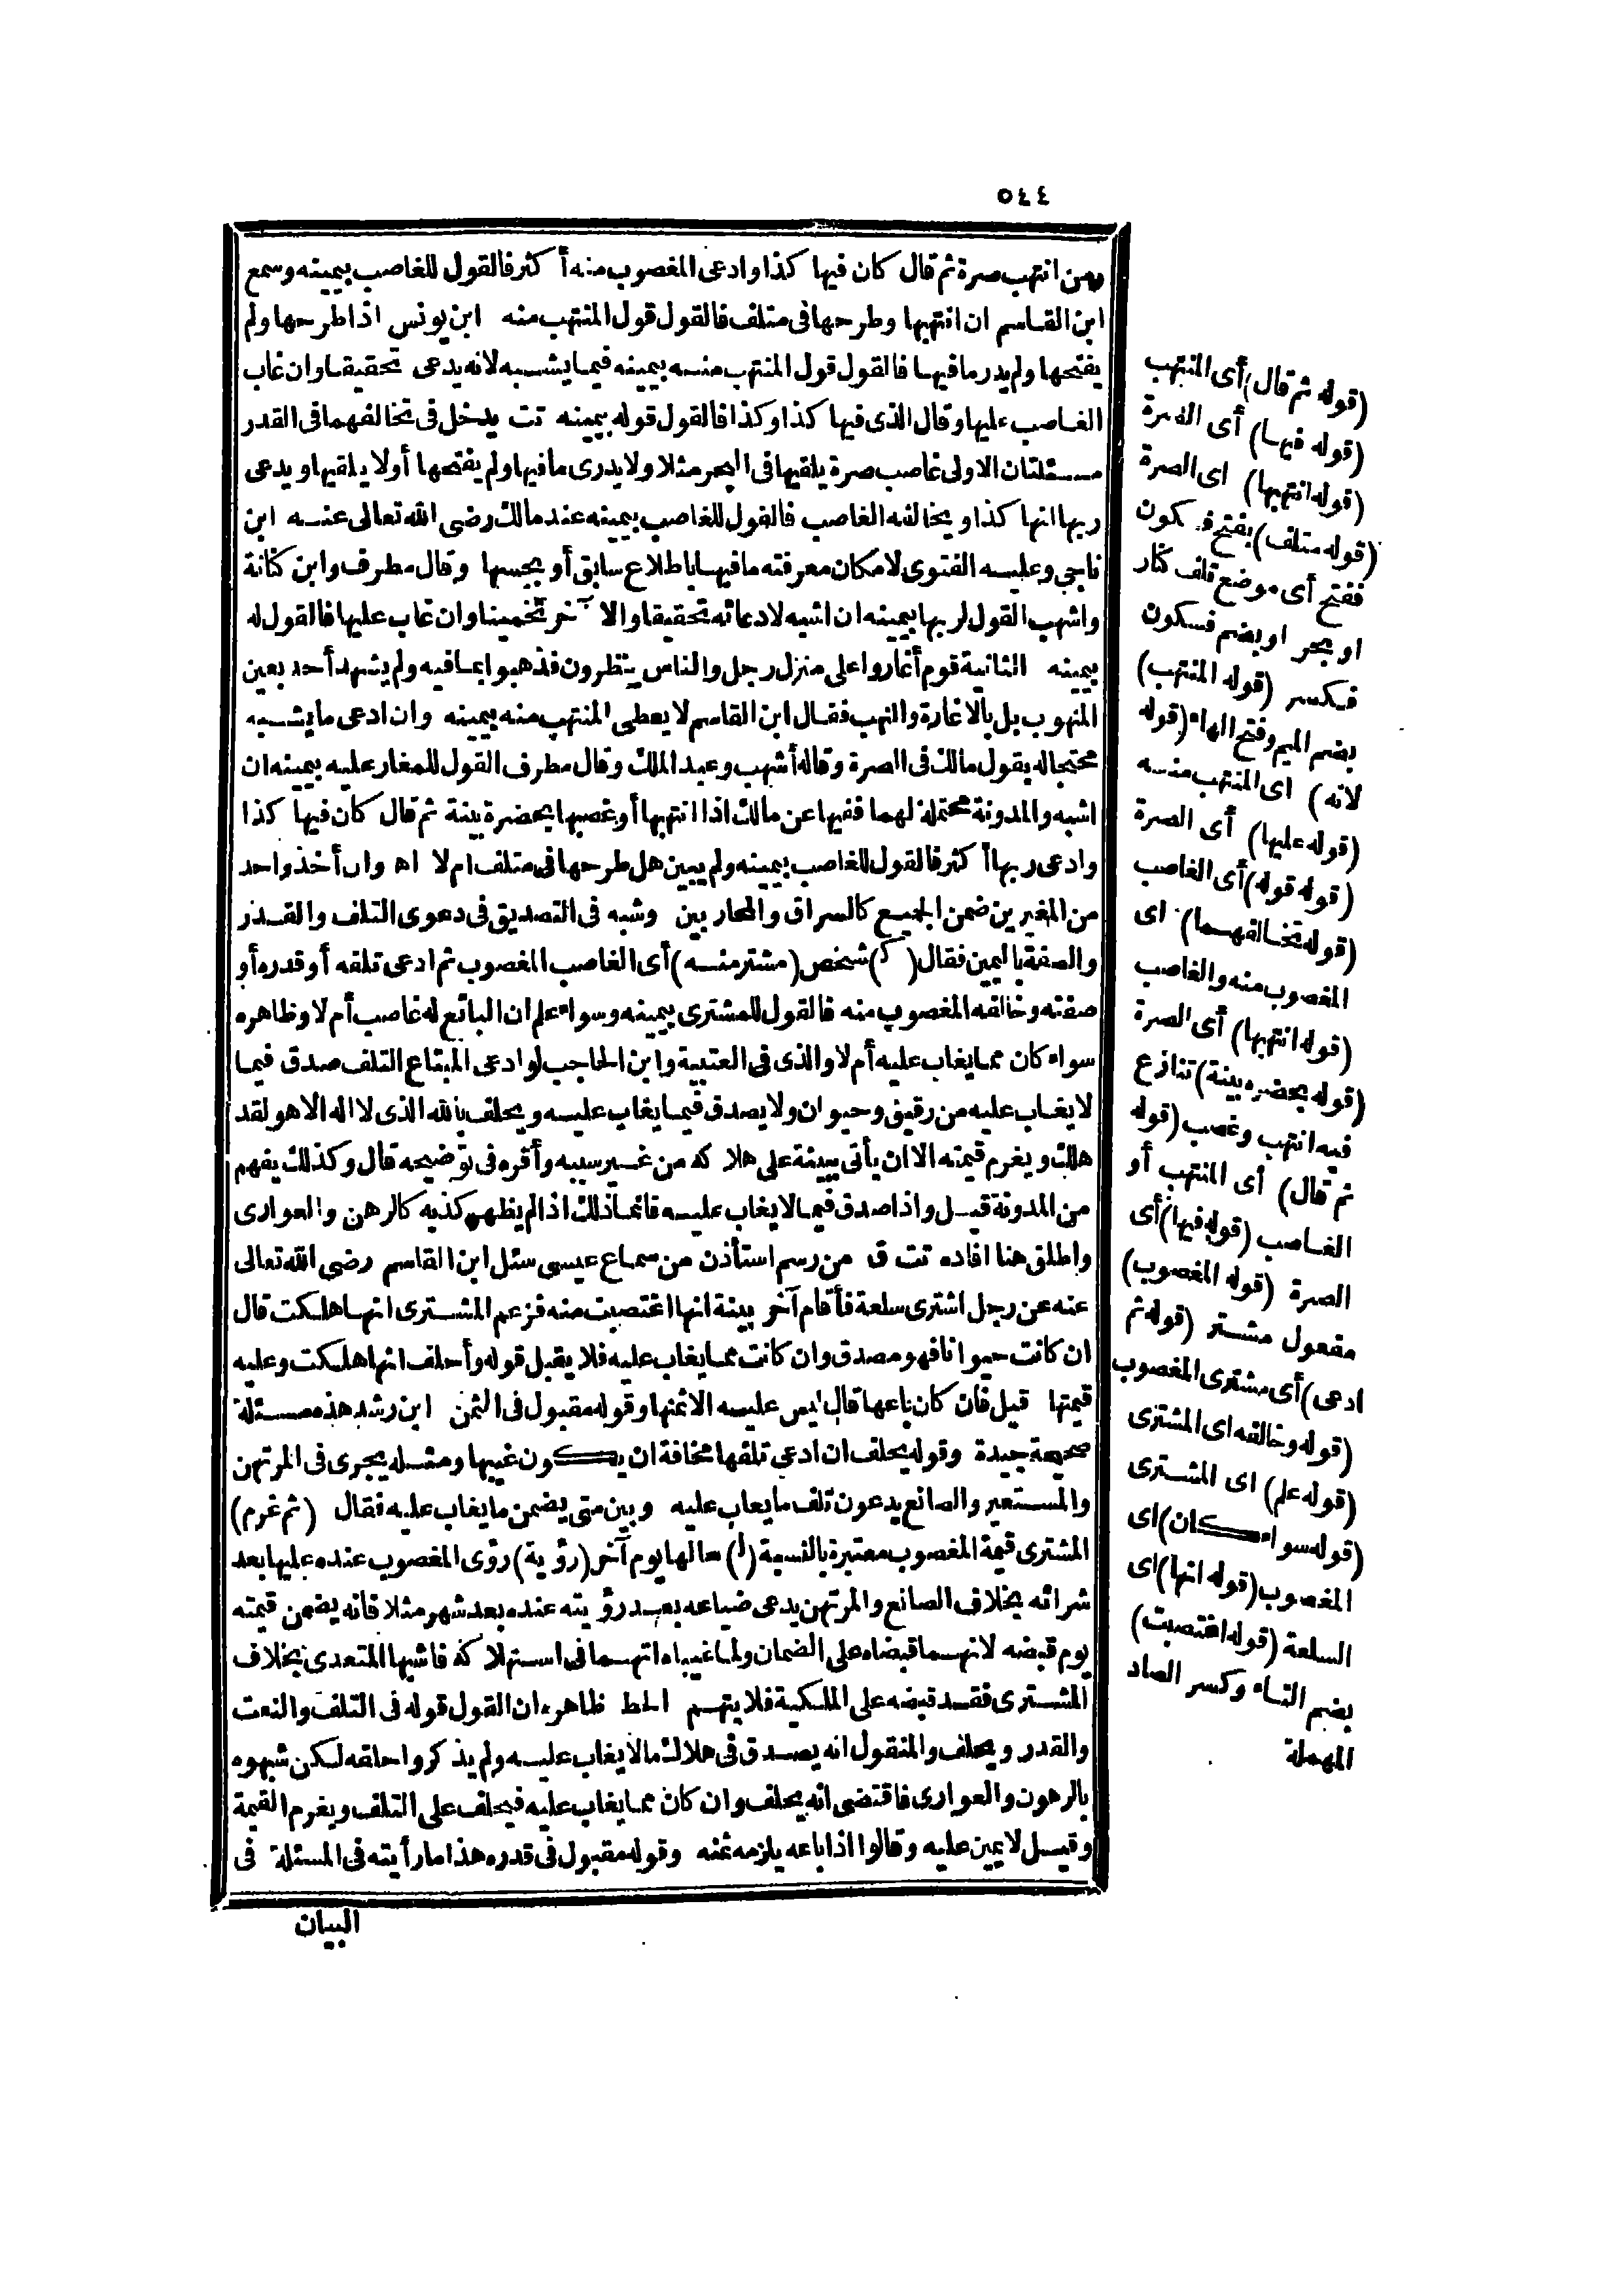 ٥٤٤
ومن انتهب صرة ثم قال كان فيها كذا وادعى المغصوب منه أكثر فالقول للغاصب بيمينه وسمع
ابن القاسم ان انتهبها وطرحها فى متلف فالقول قول المنتهب منه ابن يونس اذا طرحها ولم
يفتحها ولم يدر ما فيها فالقول قول المنتهب منه بيمينه فيما يشبه لانه يدعى تحقيقا وان غاب
الغاصب عليها وقال الذى فيها كذا وكذا فالقول قوله بيمينه تت يدخل فى تخالفهما فى القدر
مسئلتان الاولى غاصب صرة يلقيها فى البحر مثلا ولا يدرى ما فيها ولم يفتحها أولا يلقيها ويدعى
ربها انها كذا ويخالفه الغاصب فالقول للغاصب بيمينه عند مالك رضى الله تعالى عنه ابن
ناجى وعليه الفتوى لامكان معرفته ما فيها باطلاع سابق أو بجسها وقال مطرف وابن كنانة
واشهب القول لربها بيمينه ان اشبه لادعائه تحقيقا والآخر تخمينا وان غاب عليها فالقول له
بيمينه الثانية قوم أغاروا على منزل رجل والناس ينظرون فذهبوا بما فيه ولم يشهد أحد بعين
المنهوب بل بالاغارة والنهب فقال ابن القاسم لا يعطى المنتهب منه بيمينه وان ادعى ما يشبه
محتجا له بقول مالك فى الصرة وقاله أشهب وعبد الملك وقال مطرف القول للمغار عليه بيمينه ان
اشبه والمدونة محتملة لهما ففيها عن مالك اذا انتهبها أو غصبها بحضرة بينة ثم قال كان فيها كذا
وادعى ربها أكثر فالقول للغاصب بيمينه ولم يبين هل طرحها فى متلف ام لا اه وان أخذ واحد
من المغيرين ضمن الجميع كالسراق والمحاربين وشبه فى التصديق فى دعوى التلف والقدر
والصفة باليمين فقال (ك) شخص (مشتر منه) أى الغاصب المغصوب ثم ادعى تلفه أو قدره أو
صفته وخالفه المغصوب منه فالقول للمشترى بيمينه وسواء علم ان البائع له غاصب أم لا وظاهره
سواء كان مما يغاب عليه أم لا والذى فى العتبية وابن الحاجب لو ادعى المبتاع التلف صدق فيما
لا يغاب عليه من رقيق وحيوان ولا يصدق فيما يغاب عليه ويحلف بالله الذى لا اله الا هو لقد
هلك ويغرم قيمته الا ان يأتى ببينة على هلاكه من غير سببه وأقره فى توضيحه قال وكذلك يفهم
من المدونة قيل واذا صدق فيما لا يغاب عليه فانما ذلك اذا لم يظهر كذبه كالرهن والعوارى
واطلق هنا افاده تت ق من رسم استأذن من سماع عيسى سئل ابن القاسم رضى الله تعالى
عنه عن رجل اشترى سلعة فأقام آخر بينة انها اغتصبت منه فزعم المشترى انها هلكت قال
ان كانت حيوانا فهو مصدق وان كانت مما يغاب عليه فلا يقبل قوله وأحلف انها هلكت وعليه
قيمتها قيل فان كان باعها قال ليس عليه الا ثمنها وقوله مقبول فى الثمن ابن رشد هذه مسئلة
صحيحة جيدة وقوله يحلف ان ادعى تلفها مخافة ان يكون غيبها ومثله يجرى فى المرتهن
والمستعير والصانع يدعون تلف ما يغاب عليه وبين متى يضمن ما يغاب عليه فقال (ثم غرم)
المشترى قيمة المغصوب معتبرة بالنسبة (ل) حالها يوم آخر (رؤية) رؤى المغصوب عنده عليها بعد
شرائه بخلاف الصانع والمرتهن يدعى ضياعه بعد رؤيته عنده بعد شهر مثلا فانه يضمن قيمته
يوم قبضه لانهما قبضاه على الضمان ولما غيباه اتهما فى استهلاكه فاشبها المتعدى بخلاف
المشترى فقد قبضه على الملكية فلا يتهم الحط ظاهره ان القول قوله فى التلف والنعت
والقدر ويحلف والمنقول انه يصدق فى هلاك ما لا يغاب عليه ولم يذكروا حلفه لكن شبهوه
بالرهون والعوارى فاقتضى انه يحلف وان كان مما يغاب عليه فيحلف على التلف ويغرم القيمة
وقيل لا يمين عليه وقالوا اذا باعه يلزمه ثمنه وقوله مقبول فى قدره هذا ما رأيته فى المسئلة فى
البيان
(قوله ثم قال) أى المنتهب
(قوله فيها) أى الصرة
(قوله انتهبها) اى الصرة
(قوله متلف) بفتح فسكون
ففتح أى موضع تلف كنار
او بحر او بضم فسكون
فكسر (قوله المنتهب)
بضم الميم وفتح الهاء (قوله
لانه) اى المنتهب منه
(قوله عليها) أى الصرة
(قوله قوله) أى الغاصب
(قوله تخالفهما) اى
المغصوب منه والغاصب
(قوله انتهبها) أى الصرة
(قوله بحضرة بينة) تنازع
فيه انتهب وغصب (قوله
ثم قال) أى المنتهب أو
الغاصب (قوله فيها) أى
الصرة (قوله المغصوب)
مفعول مشتر (قوله ثم
ادعى) أى مشترى المغصوب
(قوله وخالفه اى المشترى
(قوله علم) اى المشترى
(قوله سواء كان) اى
المغصوب (قوله انها) اى
السلعة (قوله اغتصبت)
بضم التاء وكسر الصاد
المهملة